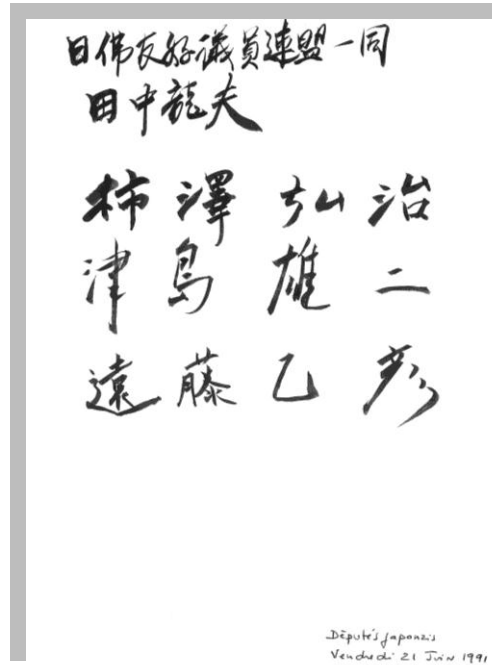 日佛友好議員連盟一同
田中龍夫
柿澤弘治
津島雄二
遠藤乙彦
Députés japonais
Vendredi 21 Juin 1991